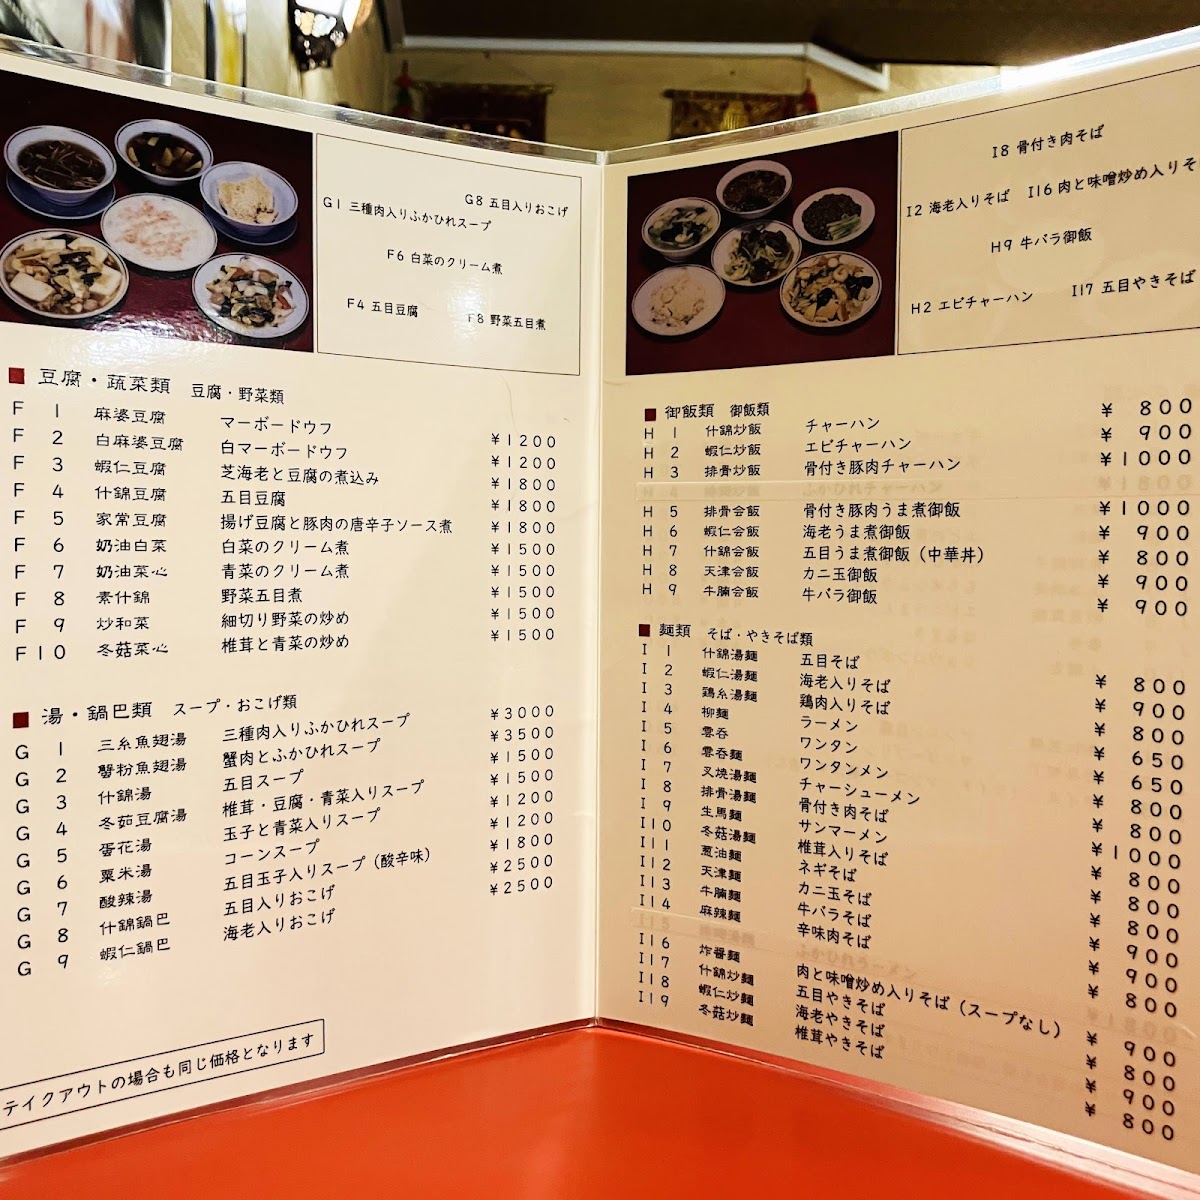 G8 五目入りおこげ
G1 三種肉入りふかひれスープ
F6 白菜のクリーム煮
F4 五目豆腐
F8 野菜五目煮
■ 豆腐・蔬菜類 豆腐・野菜類
F 1 麻婆豆腐 マーボードウフ ¥1200
F 2 白麻婆豆腐 白マーボードウフ ¥1200
F 3 蝦仁豆腐 芝海老と豆腐の煮込み ¥1800
F 4 什錦豆腐 五目豆腐 ¥1800
F 5 家常豆腐 揚げ豆腐と豚肉の唐辛子ソース煮 ¥1800
F 6 奶油白菜 白菜のクリーム煮 ¥1500
F 7 奶油菜心 青菜のクリーム煮 ¥1500
F 8 素什錦 野菜五目煮 ¥1500
F 9 炒和菜 細切り野菜の炒め ¥1500
F10 冬菇菜心 椎茸と青菜の炒め ¥1500
■ 湯・鍋巴類 スープ・おこげ類
G 1 三糸魚翅湯 三種肉入りふかひれスープ ¥3000
G 2 蟹粉魚翅湯 蟹肉とふかひれスープ ¥3500
G 3 什錦湯 五目スープ ¥1500
G 4 冬茹豆腐湯 椎茸・豆腐・青菜入りスープ ¥1500
G 5 蛋花湯 玉子と青菜入りスープ ¥1200
G 6 粟米湯 コーンスープ ¥1200
G 7 酸辣湯 五目玉子入りスープ（酸辛味） ¥1800
G 8 什錦鍋巴 五目入りおこげ ¥2500
G 9 蝦仁鍋巴 海老入りおこげ ¥2500
テイクアウトの場合も同じ価格となります
I8 骨付き肉そば
I2 海老入りそば I16 肉と味噌炒め入りそ
H9 牛バラ御飯
H2 エビチャーハン I17 五目やきそば
■ 御飯類 御飯類
H 1 什錦炒飯 チャーハン ¥ 800
H 2 蝦仁炒飯 エビチャーハン ¥ 900
H 3 排骨炒飯 骨付き豚肉チャーハン ¥1000
H 5 排骨会飯 骨付き豚肉うま煮御飯 ¥1000
H 6 蝦仁会飯 海老うま煮御飯 ¥ 900
H 7 什錦会飯 五目うま煮御飯（中華丼） ¥ 800
H 8 天津会飯 カニ玉御飯 ¥ 900
H 9 牛腩会飯 牛バラ御飯 ¥ 900
■ 麺類 そば・やきそば類
I 1 什錦湯麺 五目そば ¥ 800
I 2 蝦仁湯麺 海老入りそば ¥ 900
I 3 鶏糸湯麺 鶏肉入りそば ¥ 800
I 4 柳麺 ラーメン ¥ 650
I 5 雲呑 ワンタン ¥ 650
I 6 雲呑麺 ワンタンメン ¥ 800
I 7 叉焼湯麺 チャーシューメン ¥ 800
I 8 排骨湯麺 骨付き肉そば ¥1000
I 9 生馬麺 サンマーメン ¥ 800
I10 冬菇湯麺 椎茸入りそば ¥ 800
I11 葱油麺 ネギそば ¥ 800
I12 天津麺 カニ玉そば ¥ 900
I13 牛腩麺 牛バラそば ¥ 900
I14 麻辣麺 辛味肉そば ¥ 800
I16 炸醤麺 肉と味噌炒め入りそば（スープなし） ¥ 900
I17 什錦炒麺 五目やきそば ¥ 800
I18 蝦仁炒麺 海老やきそば ¥ 900
I19 冬菇炒麺 椎茸やきそば ¥ 800